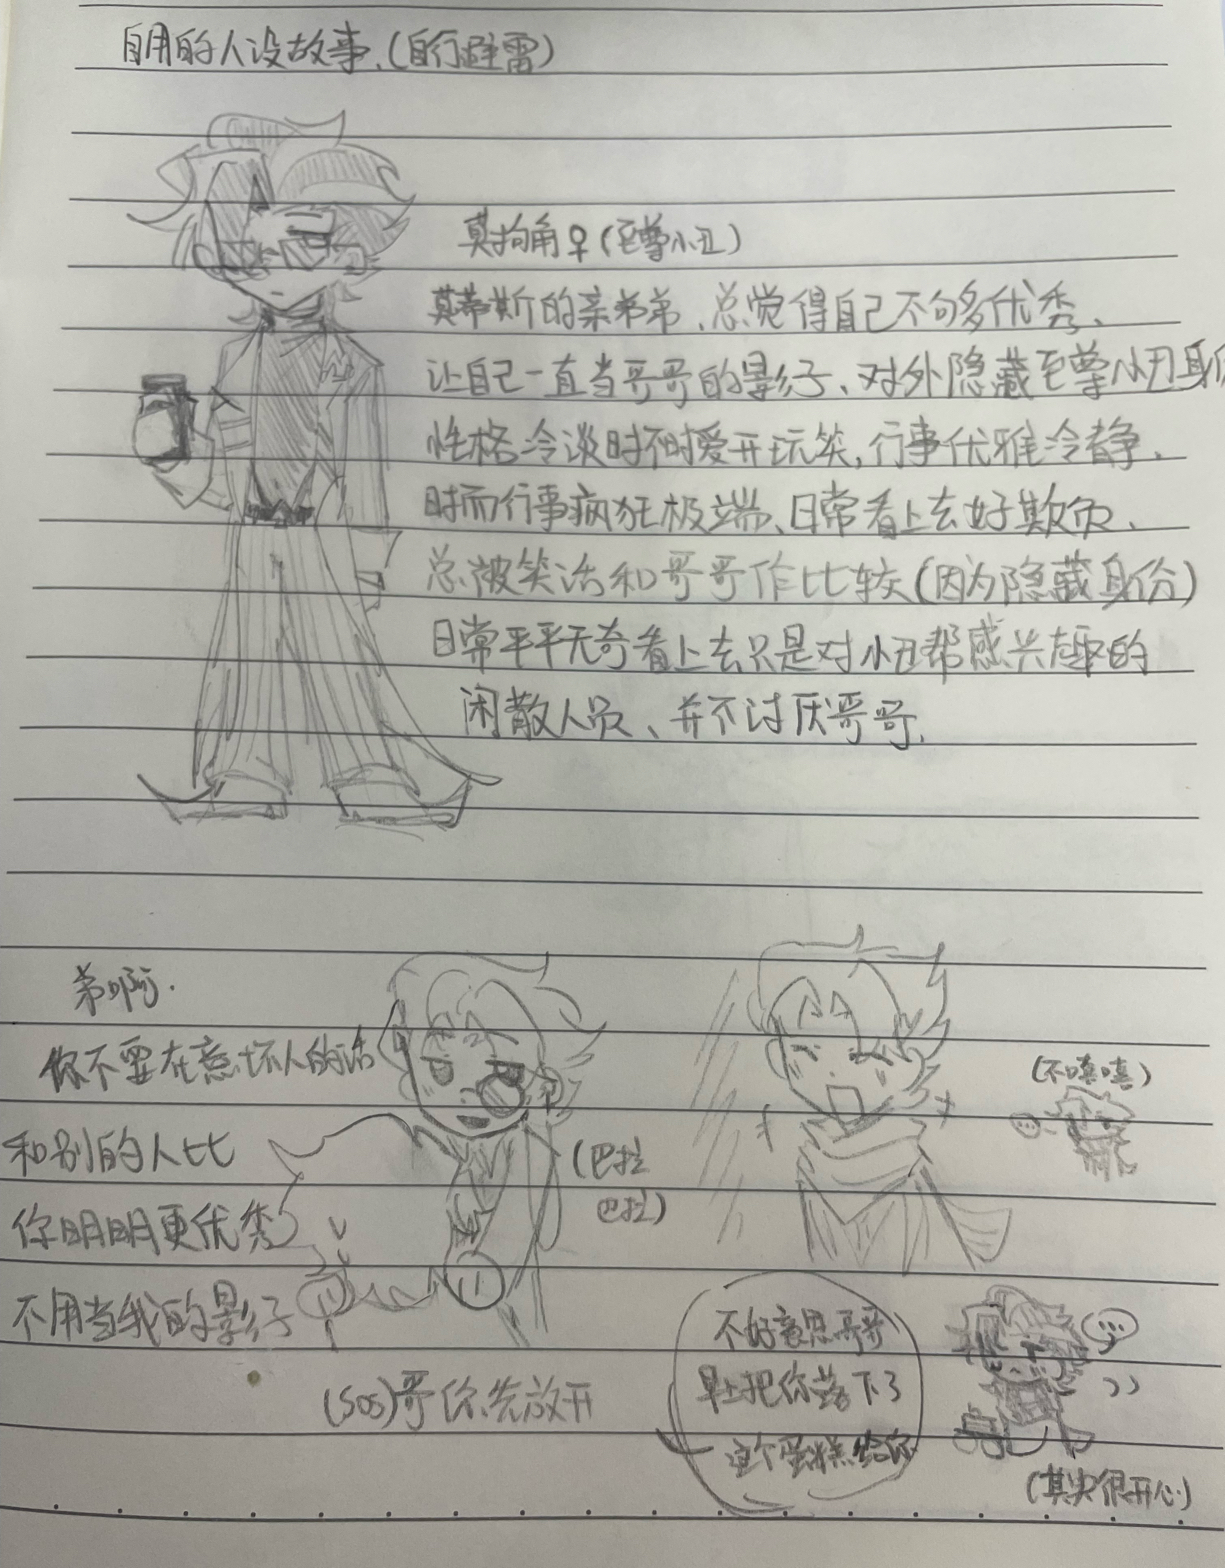 自用的人设故事.(自行避雷)
莫拘角♀(至尊小丑)
莫蒂斯的亲弟弟、总觉得自己不够优秀、
让自己一直当哥哥的影子、对外隐藏至尊小丑身份
性格冷淡时不时爱开玩笑,行事优雅冷静、
时而行事疯狂极端、日常看上去好欺负、
总被笑话和哥哥作比较(因为隐藏身份)
日常平平无奇看上去只是对小丑帮感兴趣的
闲散人员、并不讨厌哥哥.
弟啊.
你不要在意坏人的话
和别的人比
你明明更优秀
不用当我的影子
(巴拉
巴拉)
(SOS)哥你先放开
(不嘻嘻)
不好意思哥哥
早上把你落下了
这个蛋糕给你
(其实很开心)